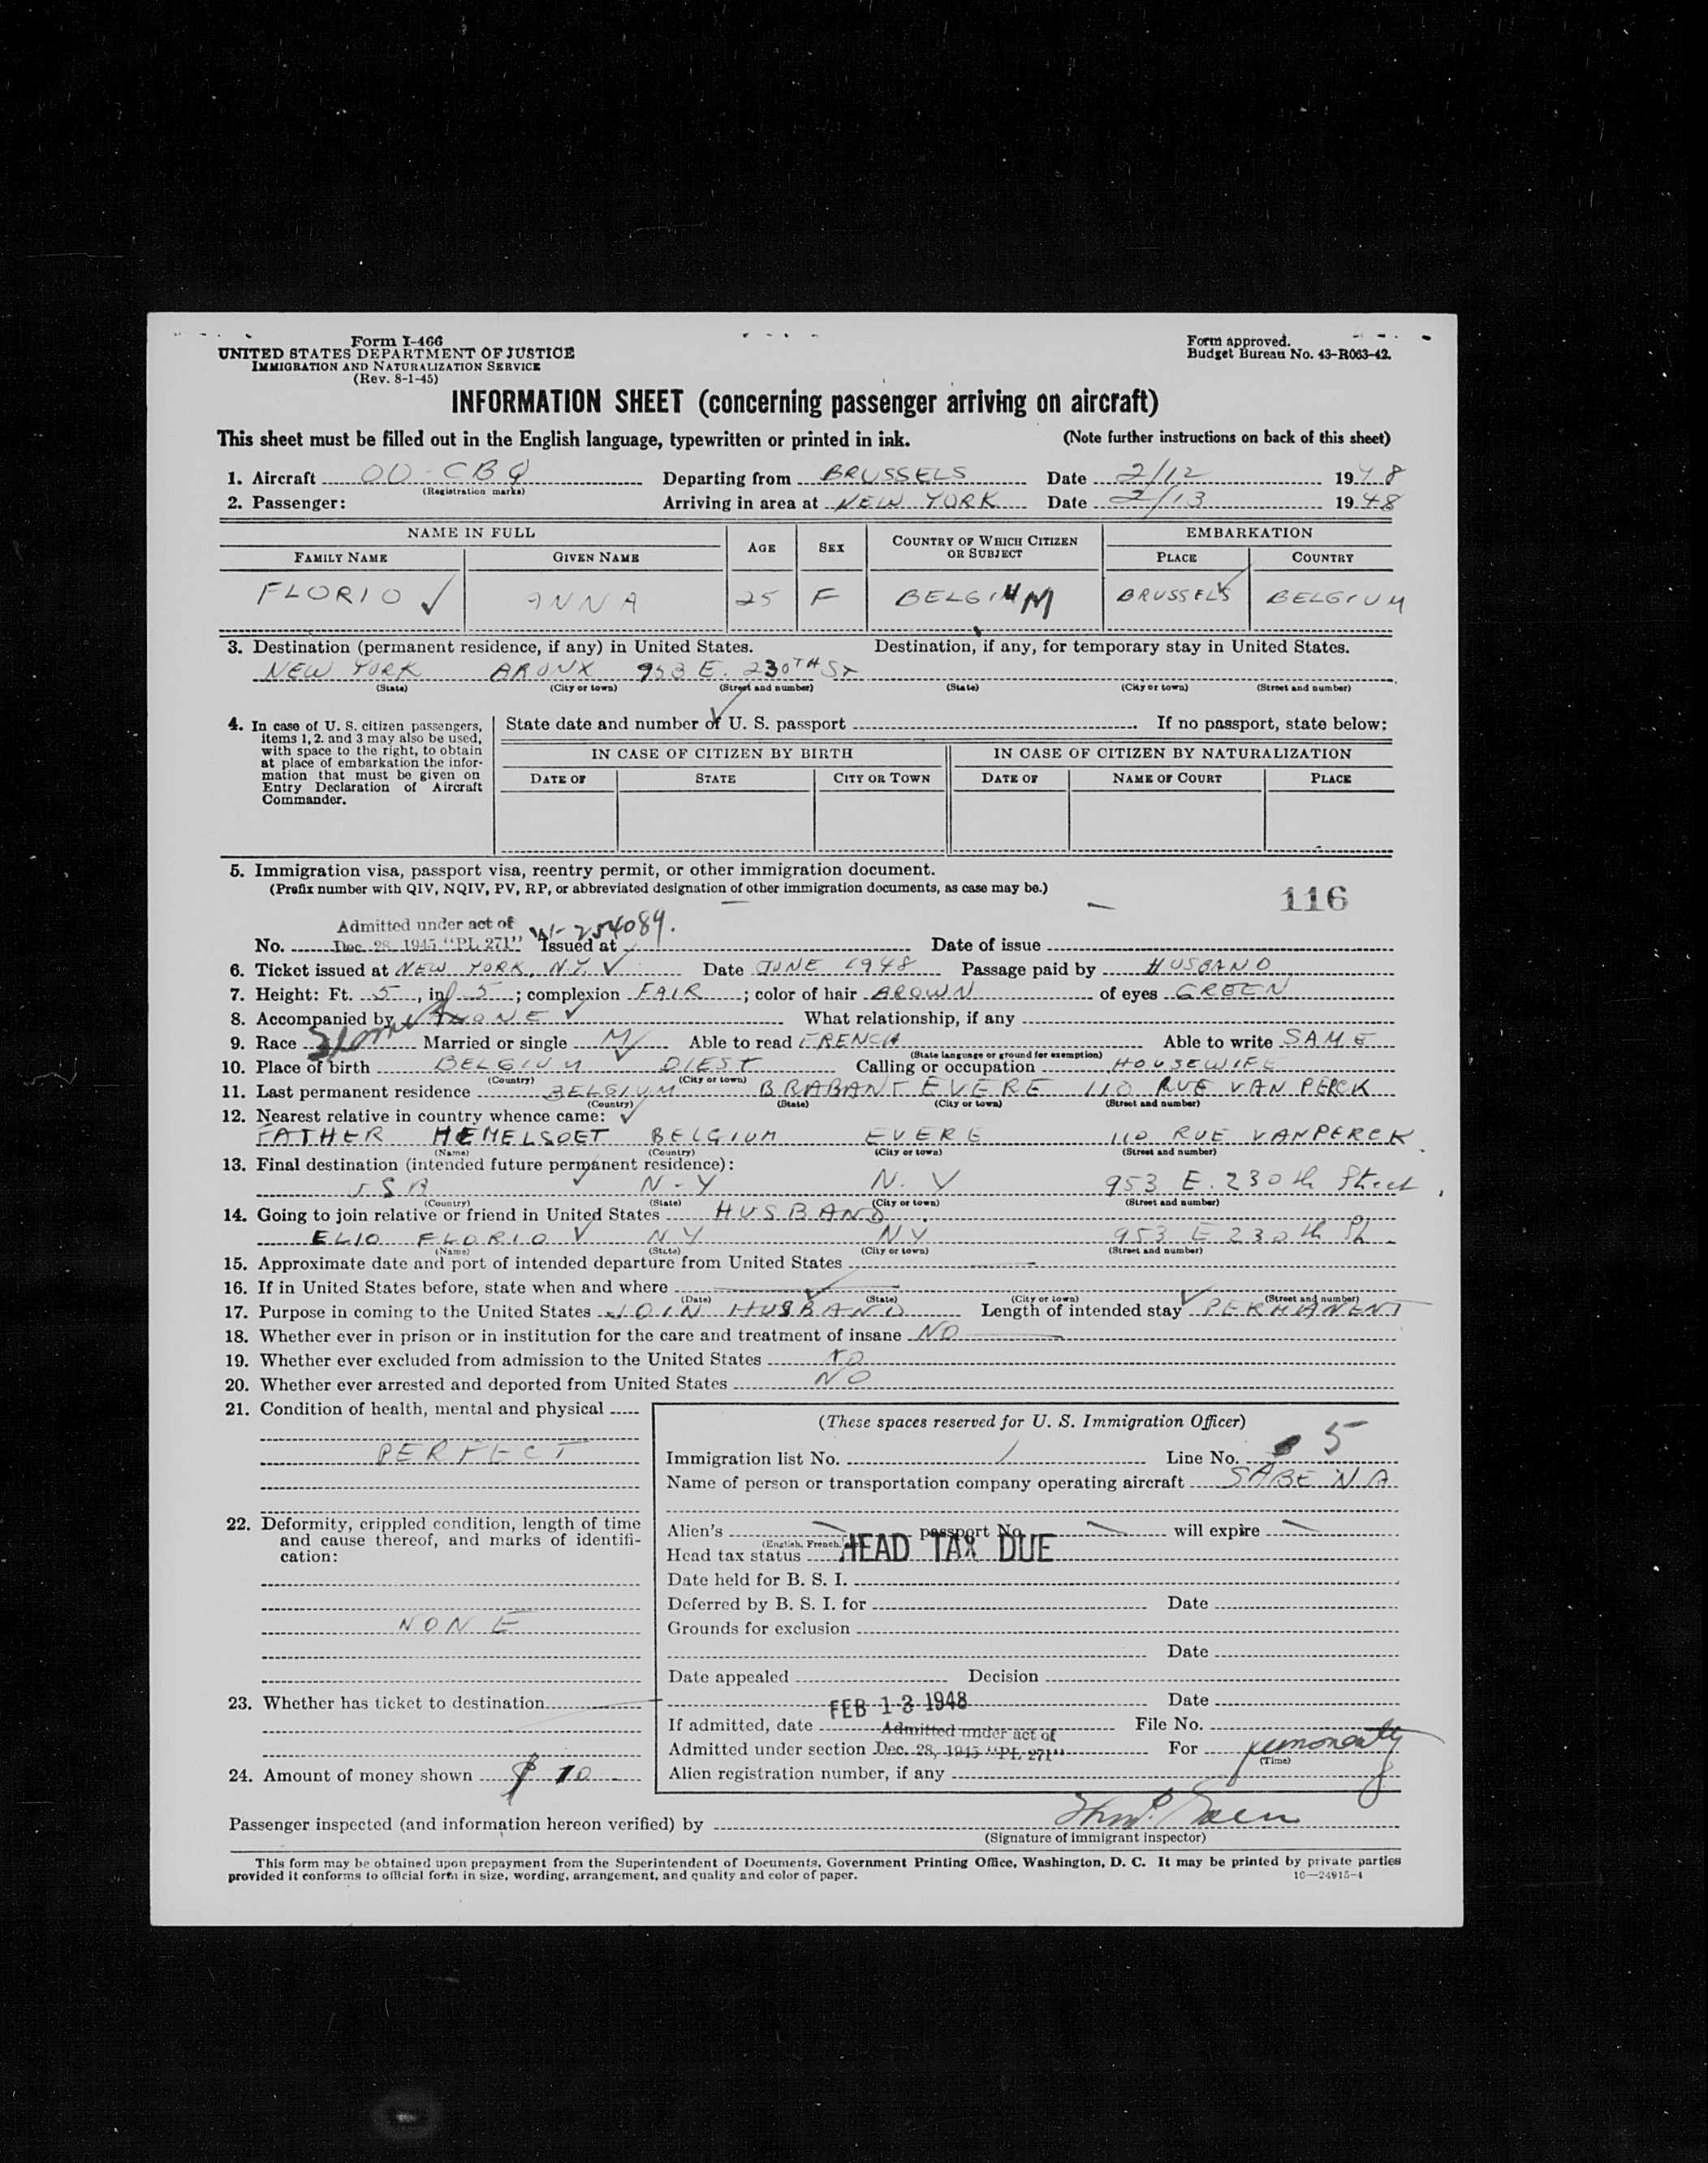 Form I-466
UNITED STATES DEPARTMENT OF JUSTICE
IMMIGRATION AND NATURALIZATION SERVICE
(Rev. 8-1-45)
Form approved.
Budget Bureau No. 43-R063-42.
INFORMATION SHEET (concerning passenger arriving on aircraft)
This sheet must be filled out in the English language, typewritten or printed in ink. (Note further instructions on back of this sheet)
1. Aircraft OO-CBQ Departing from BRUSSELS Date 2/12 1948
(Registration marks)
2. Passenger: Arriving in area at NEW YORK Date 2/13 1948
NAME IN FULL AGE SEX COUNTRY OF WHICH CITIZEN OR SUBJECT EMBARKATION
FAMILY NAME GIVEN NAME PLACE COUNTRY
FLORIO ANNA 25 F BELGIUM BRUSSELS BELGIUM
3. Destination (permanent residence, if any) in United States. Destination, if any, for temporary stay in United States.
NEW YORK BRONX 953 E. 230TH St
(State) (City or town) (Street and number) (State) (City or town) (Street and number)
4. In case of U. S. citizen passengers, items 1, 2, and 3 may also be used, with space to the right, to obtain at place of embarkation the information that must be given on Entry Declaration of Aircraft Commander.
State date and number of U. S. passport . If no passport, state below:
IN CASE OF CITIZEN BY BIRTH IN CASE OF CITIZEN BY NATURALIZATION
DATE OF STATE CITY OR TOWN DATE OF NAME OF COURT PLACE
5. Immigration visa, passport visa, reentry permit, or other immigration document.
(Prefix number with QIV, NQIV, PV, RP, or abbreviated designation of other immigration documents, as case may be.)
116
Admitted under act of
No. Dec. 28, 1945 "PL 271" 254089. Issued at Date of issue
6. Ticket issued at NEW YORK, N.Y. Date JUNE 1948 Passage paid by HUSBAND
7. Height: Ft. 5, in. 5; complexion FAIR; color of hair BROWN of eyes GREEN
8. Accompanied by NONE What relationship, if any
9. Race Married or single M Able to read FRENCH Able to write SAME
(State language or ground for exemption)
10. Place of birth BELGIUM DIEST Calling or occupation HOUSEWIFE
(Country) (City or town)
11. Last permanent residence BELGIUM BRABANT EVERE 110 RUE VAN PERCK
(Country) (State) (City or town) (Street and number)
12. Nearest relative in country whence came:
FATHER HEMELSOET BELGIUM EVERE 110 RUE VANPERCK.
(Name) (Country) (City or town) (Street and number)
13. Final destination (intended future permanent residence):
USA N-Y N.Y 953 E. 230th Street
(Country) (State) (City or town) (Street and number)
14. Going to join relative or friend in United States HUSBAND
ELIO FLORIO NY NY 953 E 230th
(Name) (State) (City or town) (Street and number)
15. Approximate date and port of intended departure from United States
16. If in United States before, state when and where
(Date) (State) (City or town) (Street and number)
17. Purpose in coming to the United States JOIN HUSBAND Length of intended stay PERMANENT
18. Whether ever in prison or in institution for the care and treatment of insane NO
19. Whether ever excluded from admission to the United States NO
20. Whether ever arrested and deported from United States NO
21. Condition of health, mental and physical
PERFECT
22. Deformity, crippled condition, length of time and cause thereof, and marks of identification:
NONE
23. Whether has ticket to destination
24. Amount of money shown $ 10
(These spaces reserved for U. S. Immigration Officer)
Immigration list No. 1 Line No. 5
Name of person or transportation company operating aircraft SABENA
Alien's passport No. will expire
(English, French,
Head tax status HEAD TAX DUE
Date held for B. S. I.
Deferred by B. S. I. for Date
Grounds for exclusion
Date
Date appealed Decision
Date
If admitted, date FEB 13 1948 File No.
Admitted under act of
Admitted under section Dec. 28, 1945 "PL 271" For permanently
(Time)
Alien registration number, if any
Passenger inspected (and information hereon verified) by
(Signature of immigrant inspector)
This form may be obtained upon prepayment from the Superintendent of Documents, Government Printing Office, Washington, D. C. It may be printed by private parties
provided it conforms to official form in size, wording, arrangement, and quality and color of paper. 16—24915-4